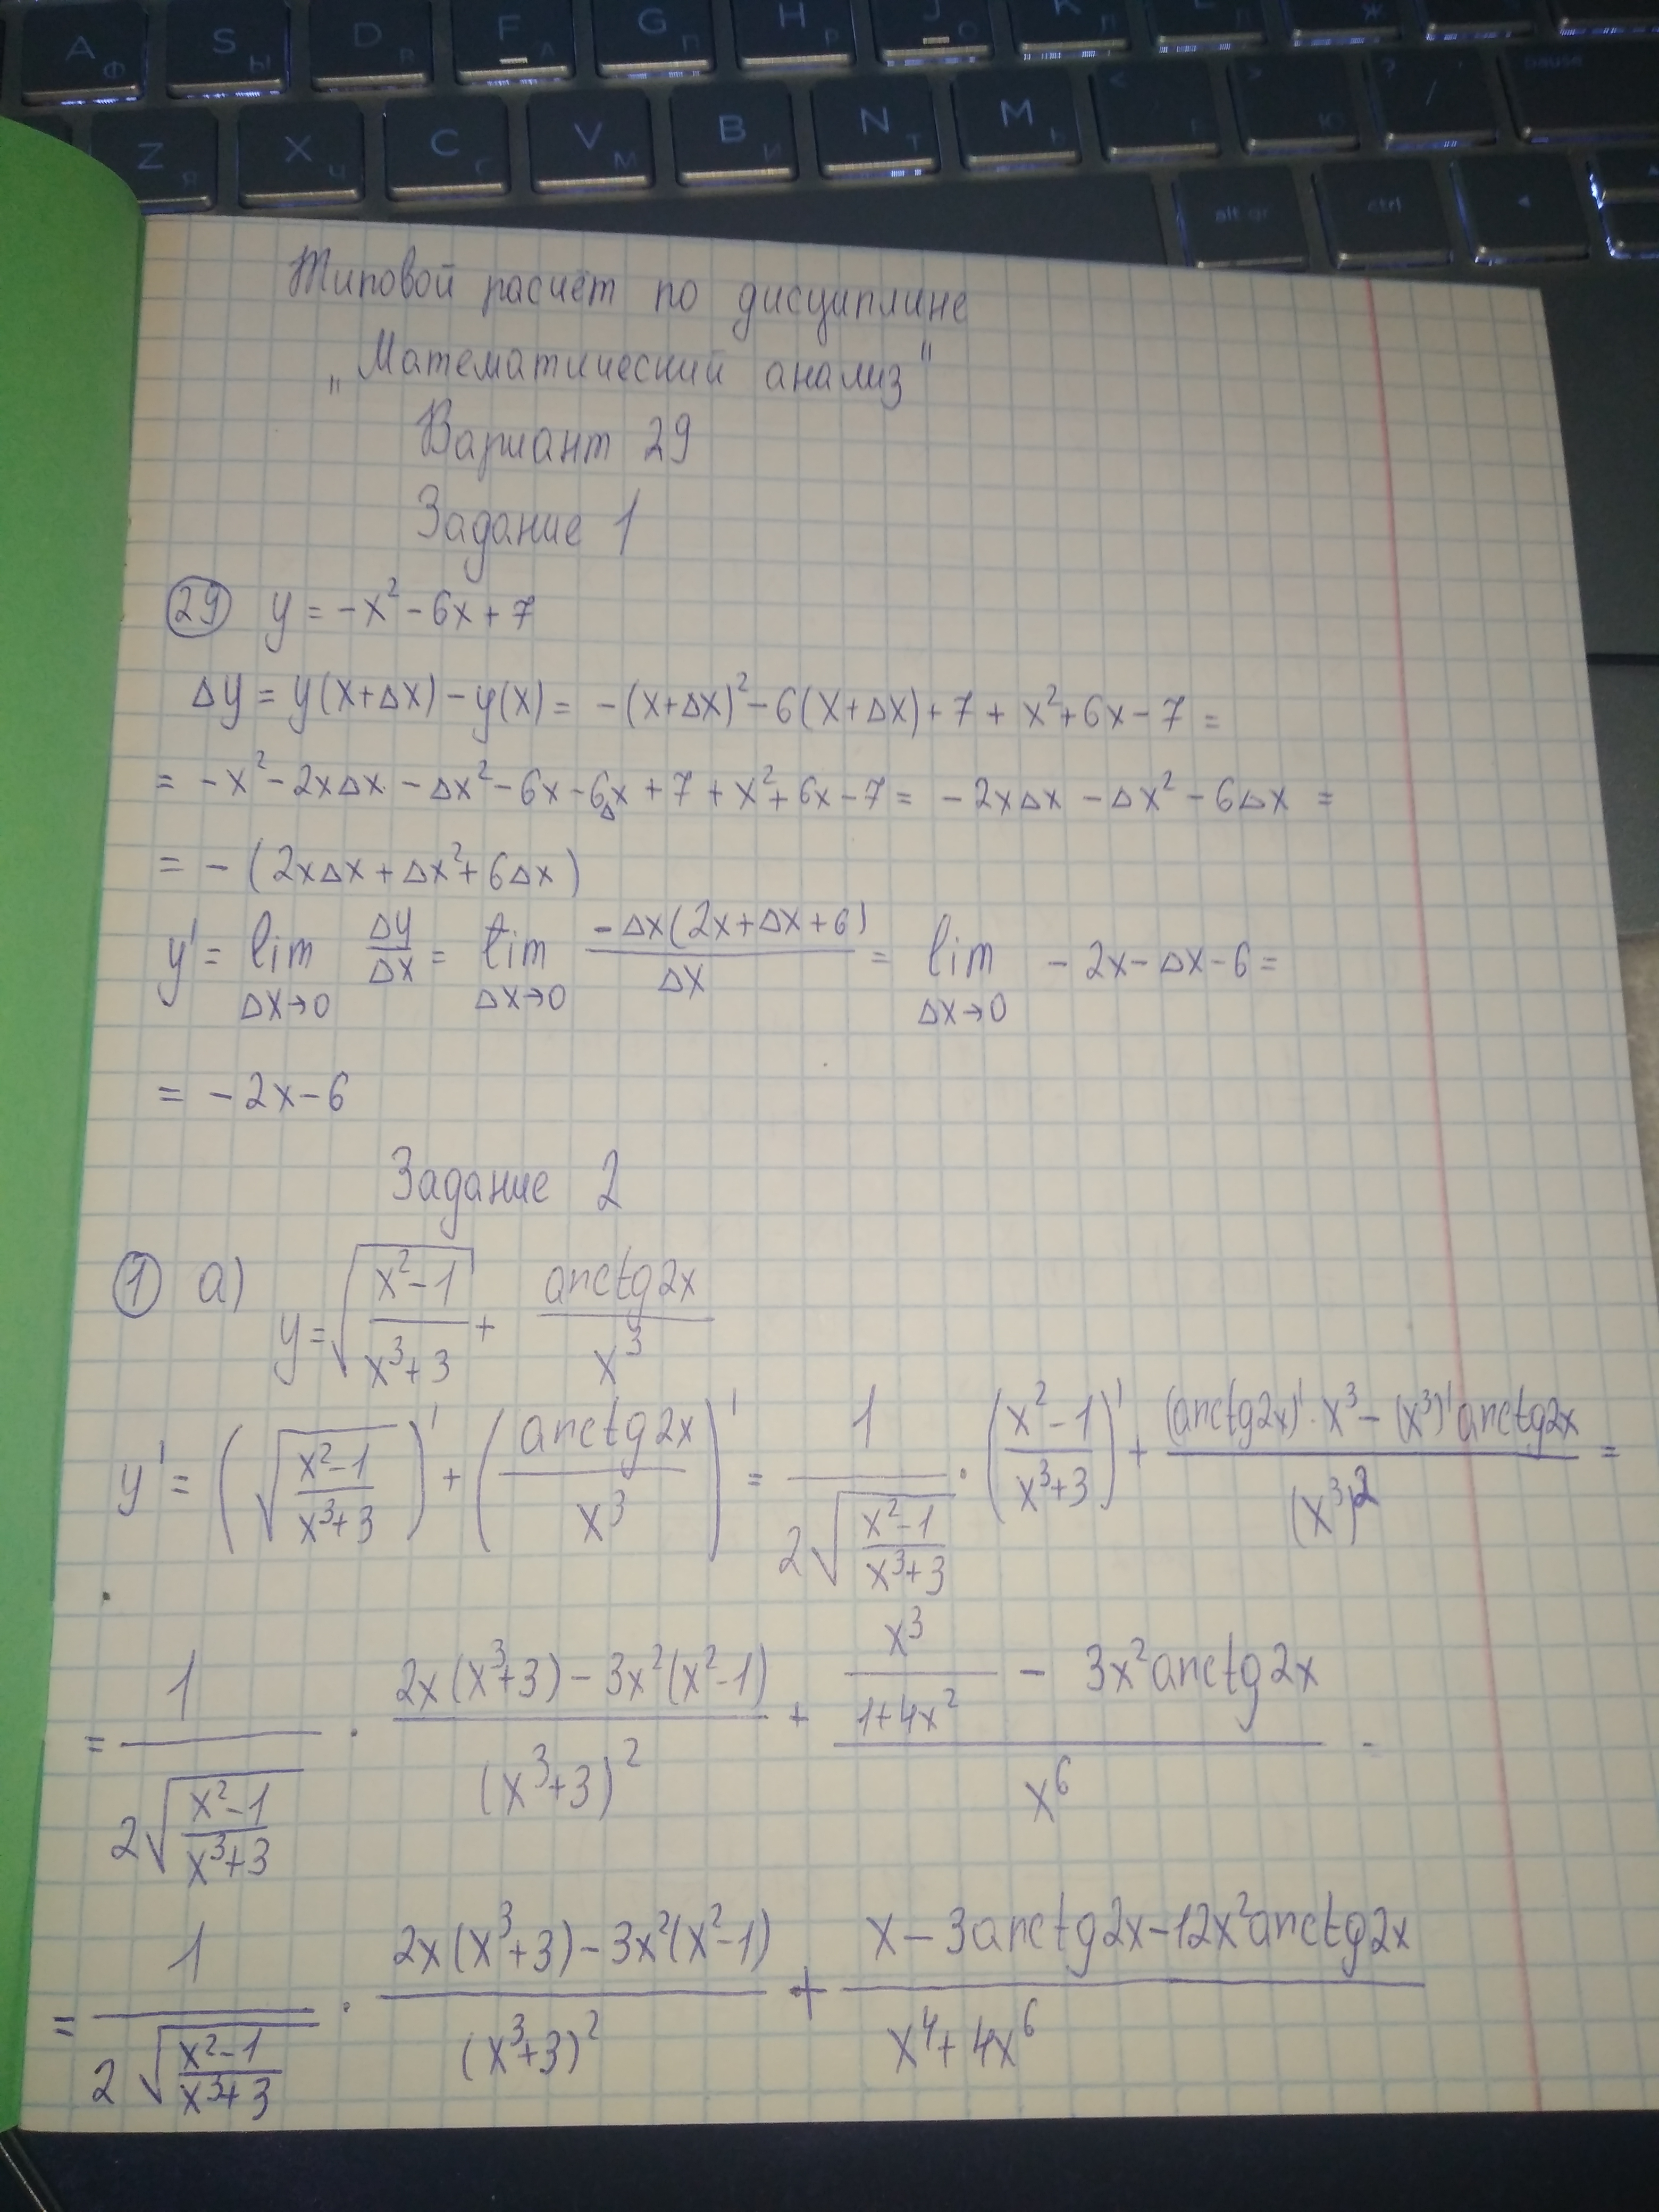 A Ф S Ы D В F А G П H Р J О K Л L Д Ж
Z Я X Ч C С V М B И N Т M Ь < > Ю ? / pause
alt gr ctrl
Типовой расчёт по дисциплине
„Математический анализ"
Вариант 29
Задание 1
29 y = -x² - 6x + 7
Δy = y(x+Δx) - y(x) = -(x+Δx)² - 6(x+Δx) + 7 + x² + 6x - 7 =
= -x² - 2xΔx - Δx² - 6x - 6Δx + 7 + x² + 6x - 7 = -2xΔx - Δx² - 6Δx =
= -(2xΔx + Δx² + 6Δx)
y' = lim_{Δx→0} Δy/Δx = lim_{Δx→0} (-Δx(2x+Δx+6))/Δx = lim_{Δx→0} -2x-Δx-6 =
= -2x-6
Задание 2
1 а) y = √((x²-1)/(x³+3)) + (arctg2x)/x³
y' = (√((x²-1)/(x³+3)))' + ((arctg2x)/x³)' = 1/(2√((x²-1)/(x³+3))) · ((x²-1)/(x³+3))' + ((arctg2x)'·x³ - (x³)'arctg2x)/(x³)² =
= 1/(2√((x²-1)/(x³+3))) · (2x(x³+3) - 3x²(x²-1))/(x³+3)² + (x³/(1+4x²) - 3x²arctg2x)/x⁶ =
= 1/(2√((x²-1)/(x³+3))) · (2x(x³+3) - 3x²(x²-1))/(x³+3)² + (x - 3arctg2x - 12x²arctg2x)/(x⁴+4x⁶)